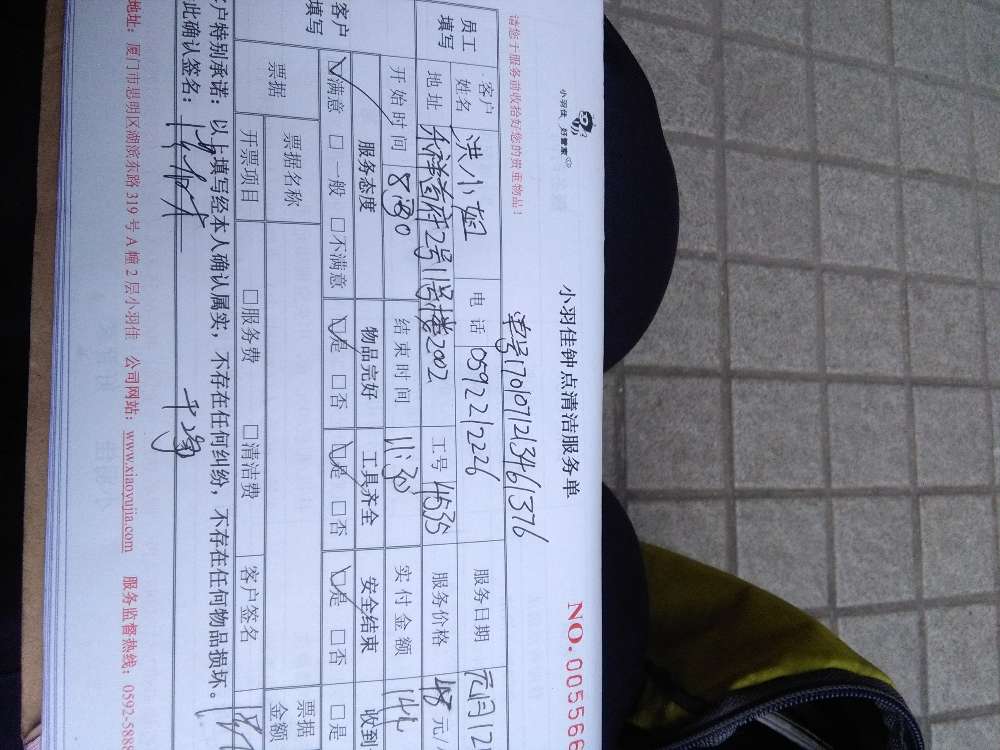 小羽佳 好管家
小羽佳钟点清洁服务单
NO.005566
请您于服务前收拾好您的贵重物品！
单号1701071213461376
员工填写 客户姓名 洪小姐 电话 05922122226 服务日期 元月12
地址 2号11号楼2002 工号 11535 服务价格 48 元/
开始时间 8:30 结束时间 11:30 实付金额 144
客户填写 服务态度 物品完好 工具齐全 安全结束 收到
☑满意 □一般 □不满意 ☑是 □否 ☑是 □否 ☑是 □否 □是
票据 票据名称 票据金额
开票项目 □服务费 □清洁费 客户签名
户特别承诺：以上填写经本人确认属实，不存在任何纠纷，不存在任何物品损坏。
此确认签名：
地址：厦门市思明区湖滨东路319号A幢2层小羽佳 公司网站：www.xiaoyujia.com 服务监督热线：0592-5888